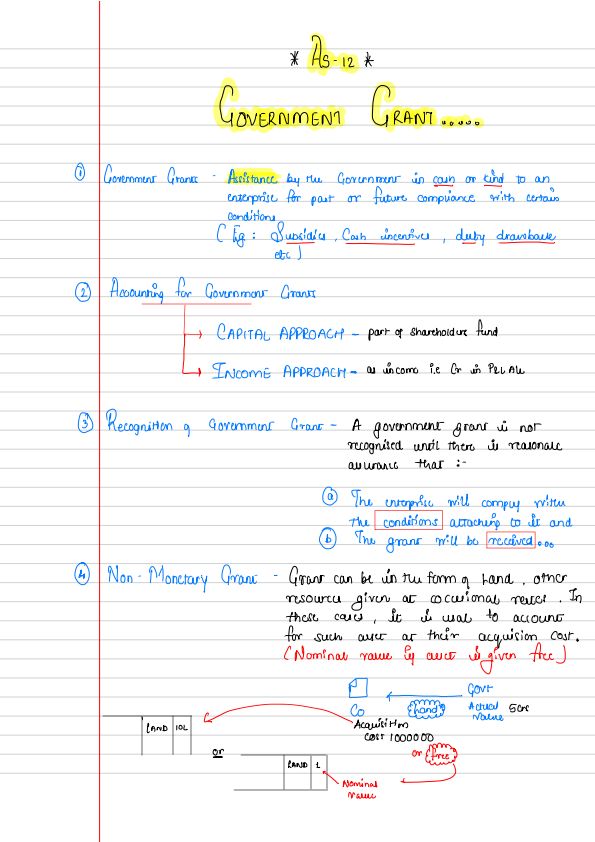 * AS-12 *
GOVERNMENT GRANT.....
① Government Grants - Assistance by the Government in cash or kind to an
enterprise for past or future compliance with certain
conditions
(Eg: Subsidies, Cash incentives, duty drawback
etc)
② Accounting for Government Grants
→ CAPITAL APPROACH - part of shareholders fund
→ INCOME APPROACH - as income i.e Cr in P&L A/c
③ Recognition of Government Grant - A government grant is not
recognised until there is reasonable
assurance that :-
ⓐ The enterprise will comply with
the conditions attaching to it and
ⓑ The grant will be received...
④ Non-Monetary Grant - Grant can be in the form of Land, other
resource given at
In
these cases, it is usual to account
for such asset at their acquision cost.
(Nominal value if asset is given free)
Govt
Co
Land
Actual 5cr
Value
Acquisition
LAND 10L
Cost 1000000
or
or free
LAND 1
Nominal
value